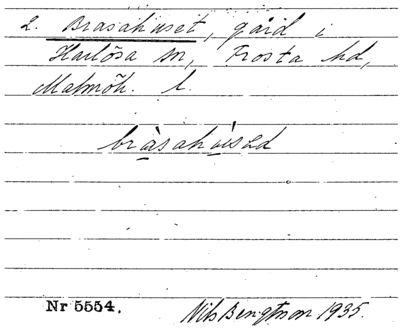 2. Brasahuset, gård i
Harlösa sn, Frosta hd,
Malmöh. l.
Nr 5554.
Nils Bengtsson 1935.